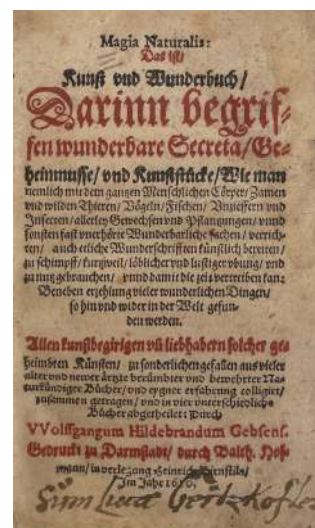 Magia Naturalis:
Das ist/
Kunst vnd Wunderbuch/
Darinn begrif-
fen wunderbare Secreta/Ge-
heimnusse/vnd Kunststücke/Wie man
nemlich mit dem gantzen Menschlichen Cörper/Zamen
vnd wilden Thieren/Vögeln/Fischen/Vnzieffern vnd
Insecten/allerley Gewechsen vnd Pflantzungen/vnnd
sonsten fast vnerhörte Wunderbarliche sachen/verrich-
ten/auch etliche Wunderschrifften künstlich bereiten/
zu schimpff/kurtzweil/löblicher vnd lustiger vbung/vnd
zu nutz gebrauchen/vnnd damit die zeit vertreiben kan:
Beneben erzehlung vieler wunderlichen Dingen/
so hin vnd wider in der Welt gefun-
den werden.
Allen kunstbegirigen vñ liebhabern solcher ge-
heimbten Künsten/zu sonderlichen gefallen aus vieler
alter vnd newer ärtzte berümbter vnd bewehrter Na-
turkündiger Bücher/vnd eygner erfahrung colligirt/
zusammen getragen/vnd in vier vnterschiedliche
Bücher abgetheilet: Durch
VVolffgangum Hildebrandum Gebsens.
Gedruckt zu Darmstadt/durch Balth. Hof-
mann/in verlegung Heinrich Birnstils/
Im Jahr